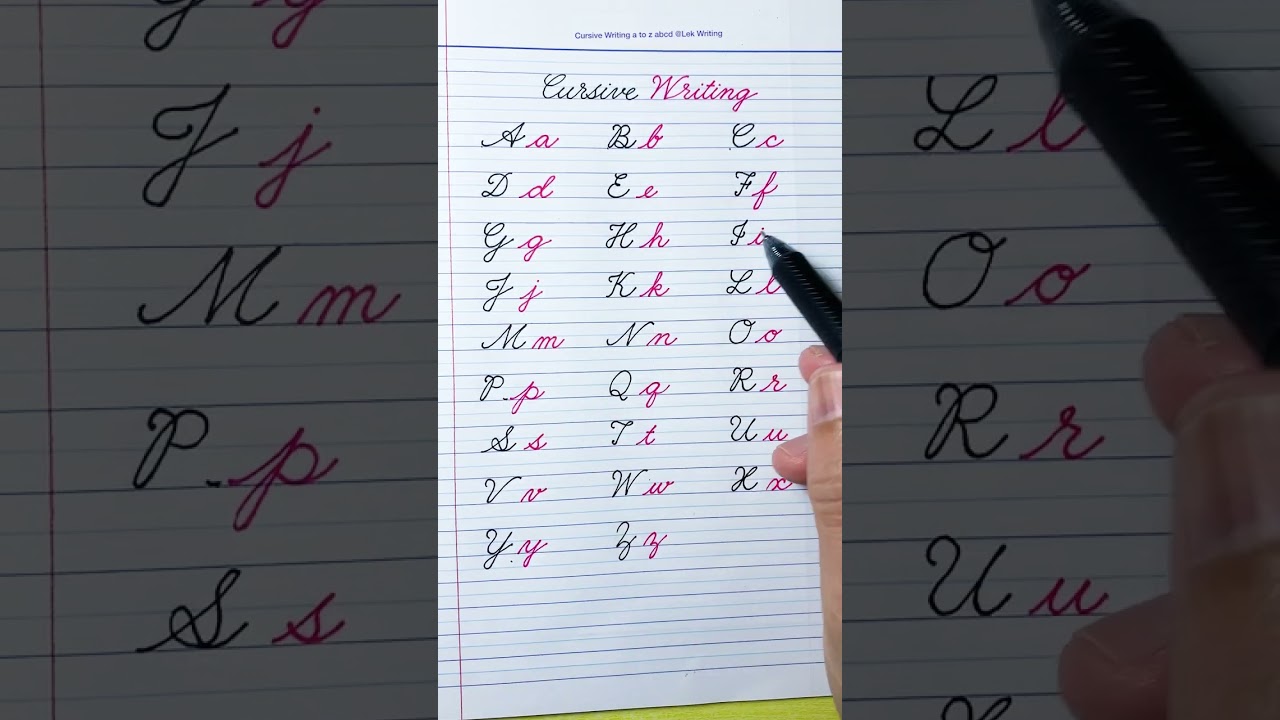 Cursive Writing a to z abcd @Lek Writing
Cursive Writing
A a B b C c
D d E e F f
G g H h I i
J j K k L l
M m N n O o
P p Q q R r
S s T t U u
V v W w X x
Y y Z z